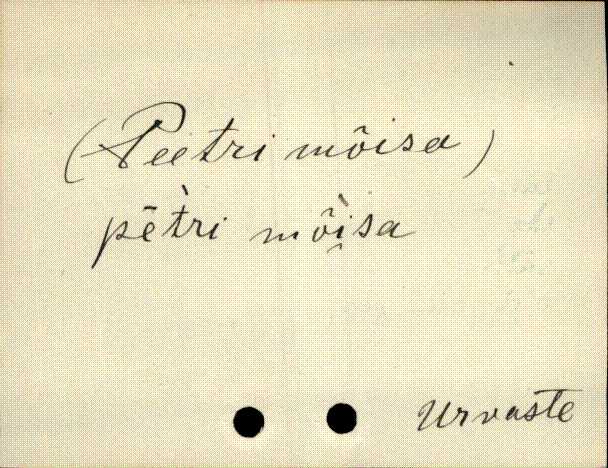 (Peetri mõisa)
pēt̀ri mõì̯sa
Urvaste